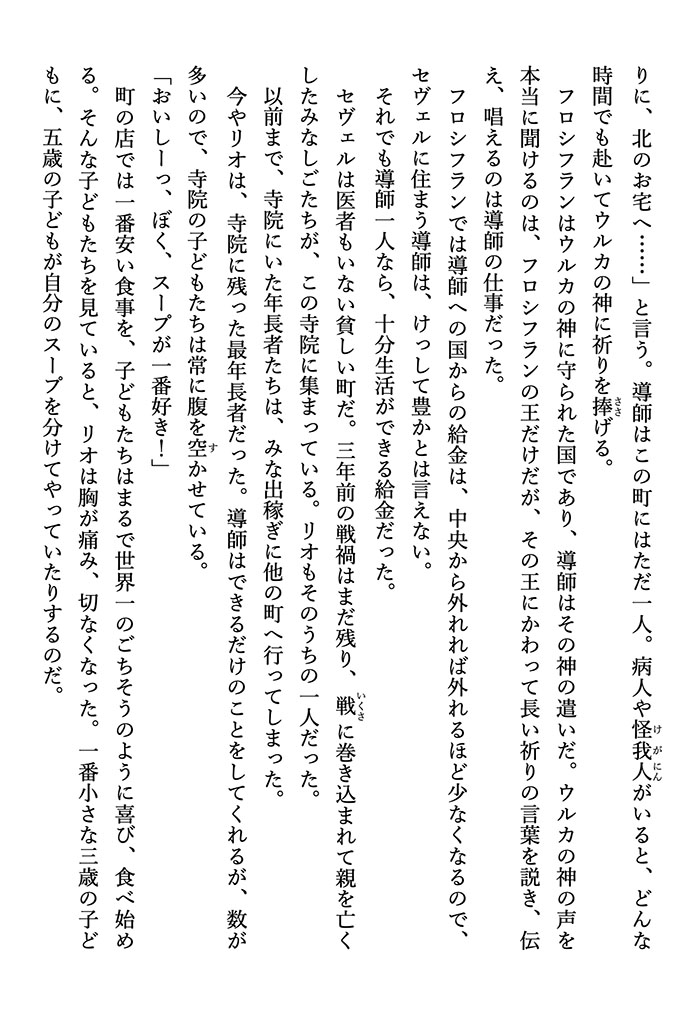 りに、北のお宅へ……」と言う。導師はこの町にはただ一人。病人や怪我人がいると、どんな
時間でも赴いてウルカの神に祈りを捧げる。
　フロシフランはウルカの神に守られた国であり、導師はその神の遣いだ。ウルカの神の声を
本当に聞けるのは、フロシフランの王だけだが、その王にかわって長い祈りの言葉を説き、伝
え、唱えるのは導師の仕事だった。
　フロシフランでは導師への国からの給金は、中央から外れれば外れるほど少なくなるので、
セヴェルに住まう導師は、けっして豊かとは言えない。
　それでも導師一人なら、十分生活ができる給金だった。
　セヴェルは医者もいない貧しい町だ。三年前の戦禍はまだ残り、戦に巻き込まれて親を亡く
したみなしごたちが、この寺院に集まっている。リオもそのうちの一人だった。
　以前まで、寺院にいた年長者たちは、みな出稼ぎに他の町へ行ってしまった。
　今やリオは、寺院に残った最年長者だった。導師はできるだけのことをしてくれるが、数が
多いので、寺院の子どもたちは常に腹を空かせている。
「おいしーっ、ぼく、スープが一番好き！」
　町の店では一番安い食事を、子どもたちはまるで世界一のごちそうのように喜び、食べ始め
る。そんな子どもたちを見ていると、リオは胸が痛み、切なくなった。一番小さな三歳の子ど
もに、五歳の子どもが自分のスープを分けてやっていたりするのだ。